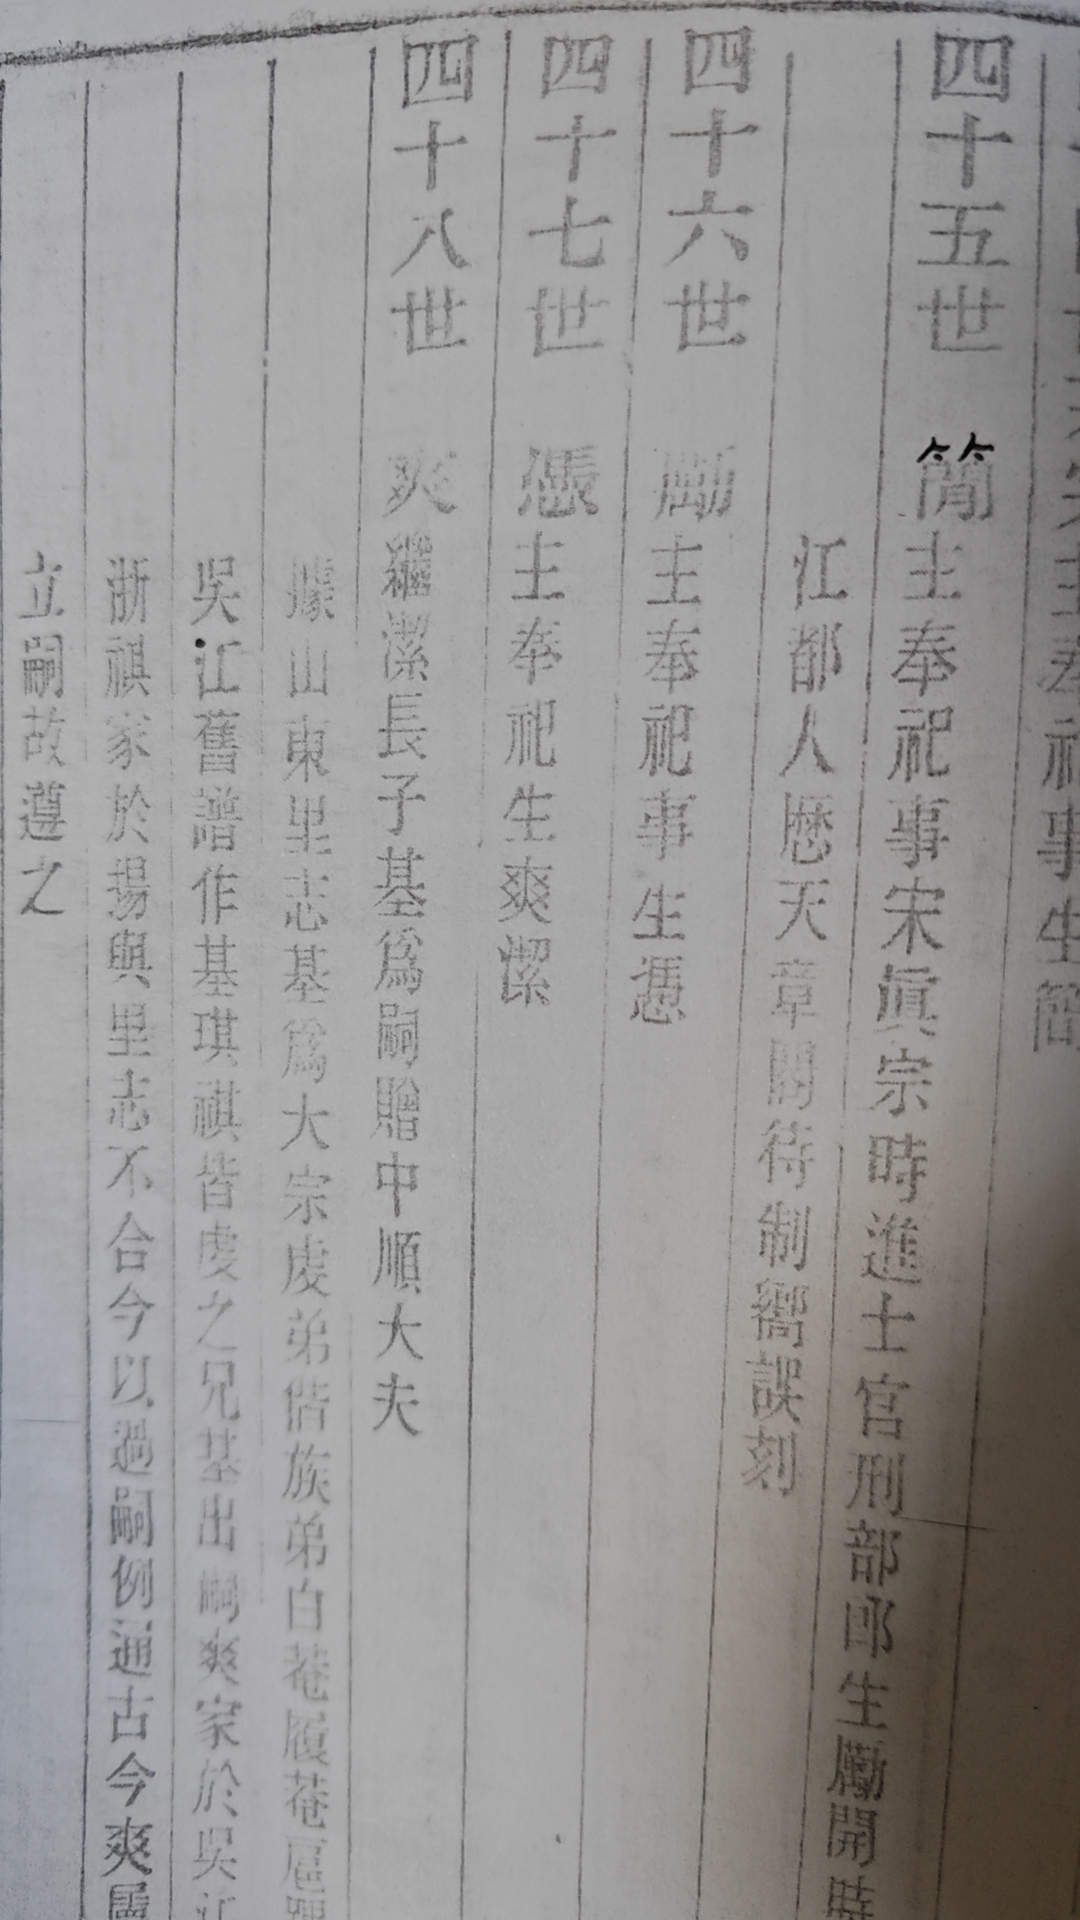 主奉祀事生簡
四十五世 簡主奉祀事宋眞宗時進士官刑部郎生勵開時
江都人歷天章閣待制嚮誤刻
四十六世 勵主奉祀事生憑
四十七世 憑主奉祀生爽潔
四十八世 爽繼潔長子基爲嗣贈中順大夫
據山東里志基爲大宗虔弟偕族弟白菴履菴扈蹕
吳江舊譜作基琪祺皆虔之兄基出嗣爽家於吳江
浙祺家於揚與里志不合今以過嗣例通古今爽屬
立嗣故遵之